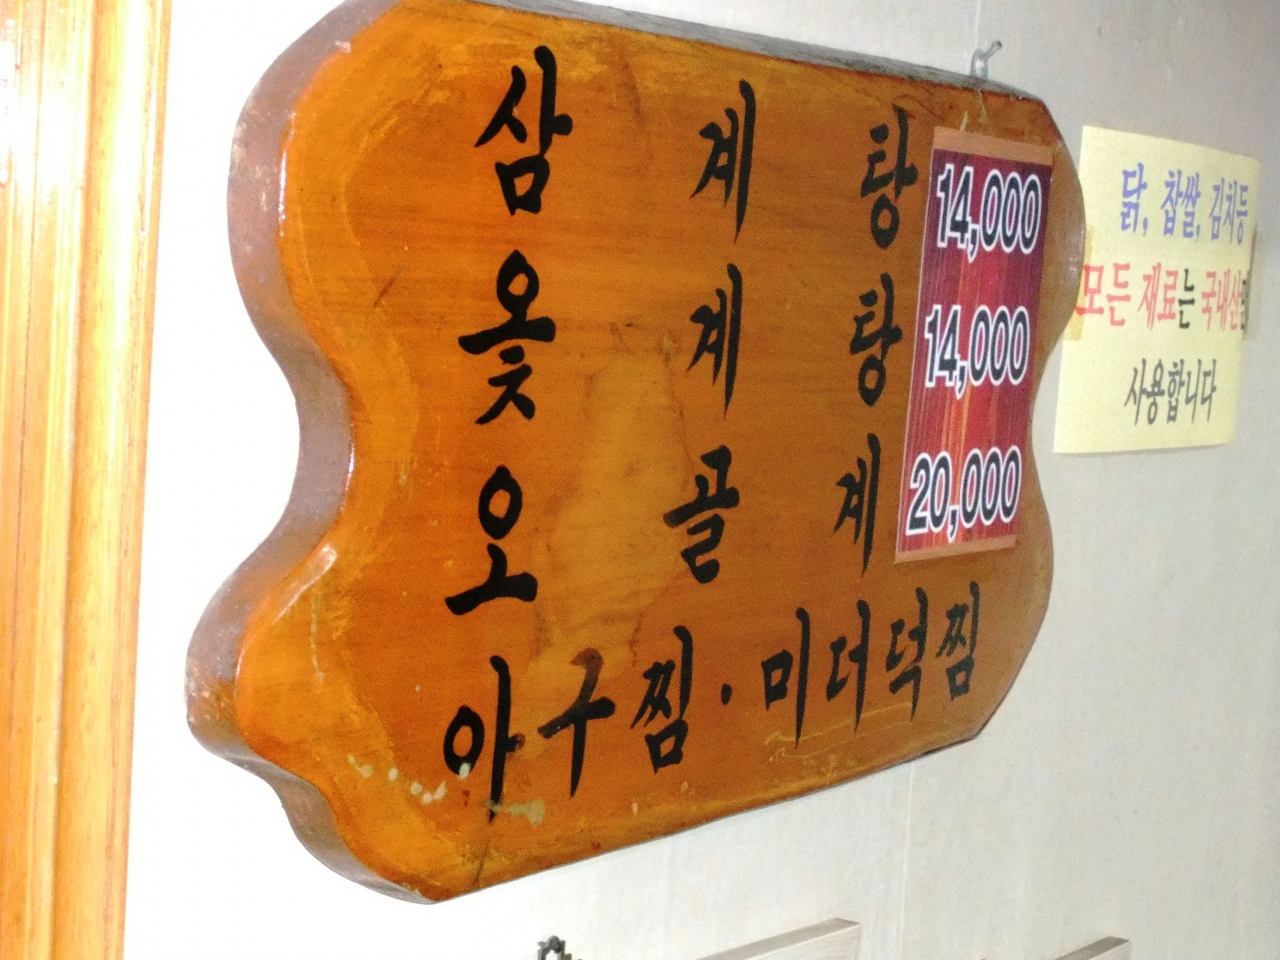 삼계탕 14,000
옻계탕 14,000
오골계 20,000
아구찜·미더덕찜
닭, 찹쌀, 김치등
모든 재료는 국내산만
사용합니다